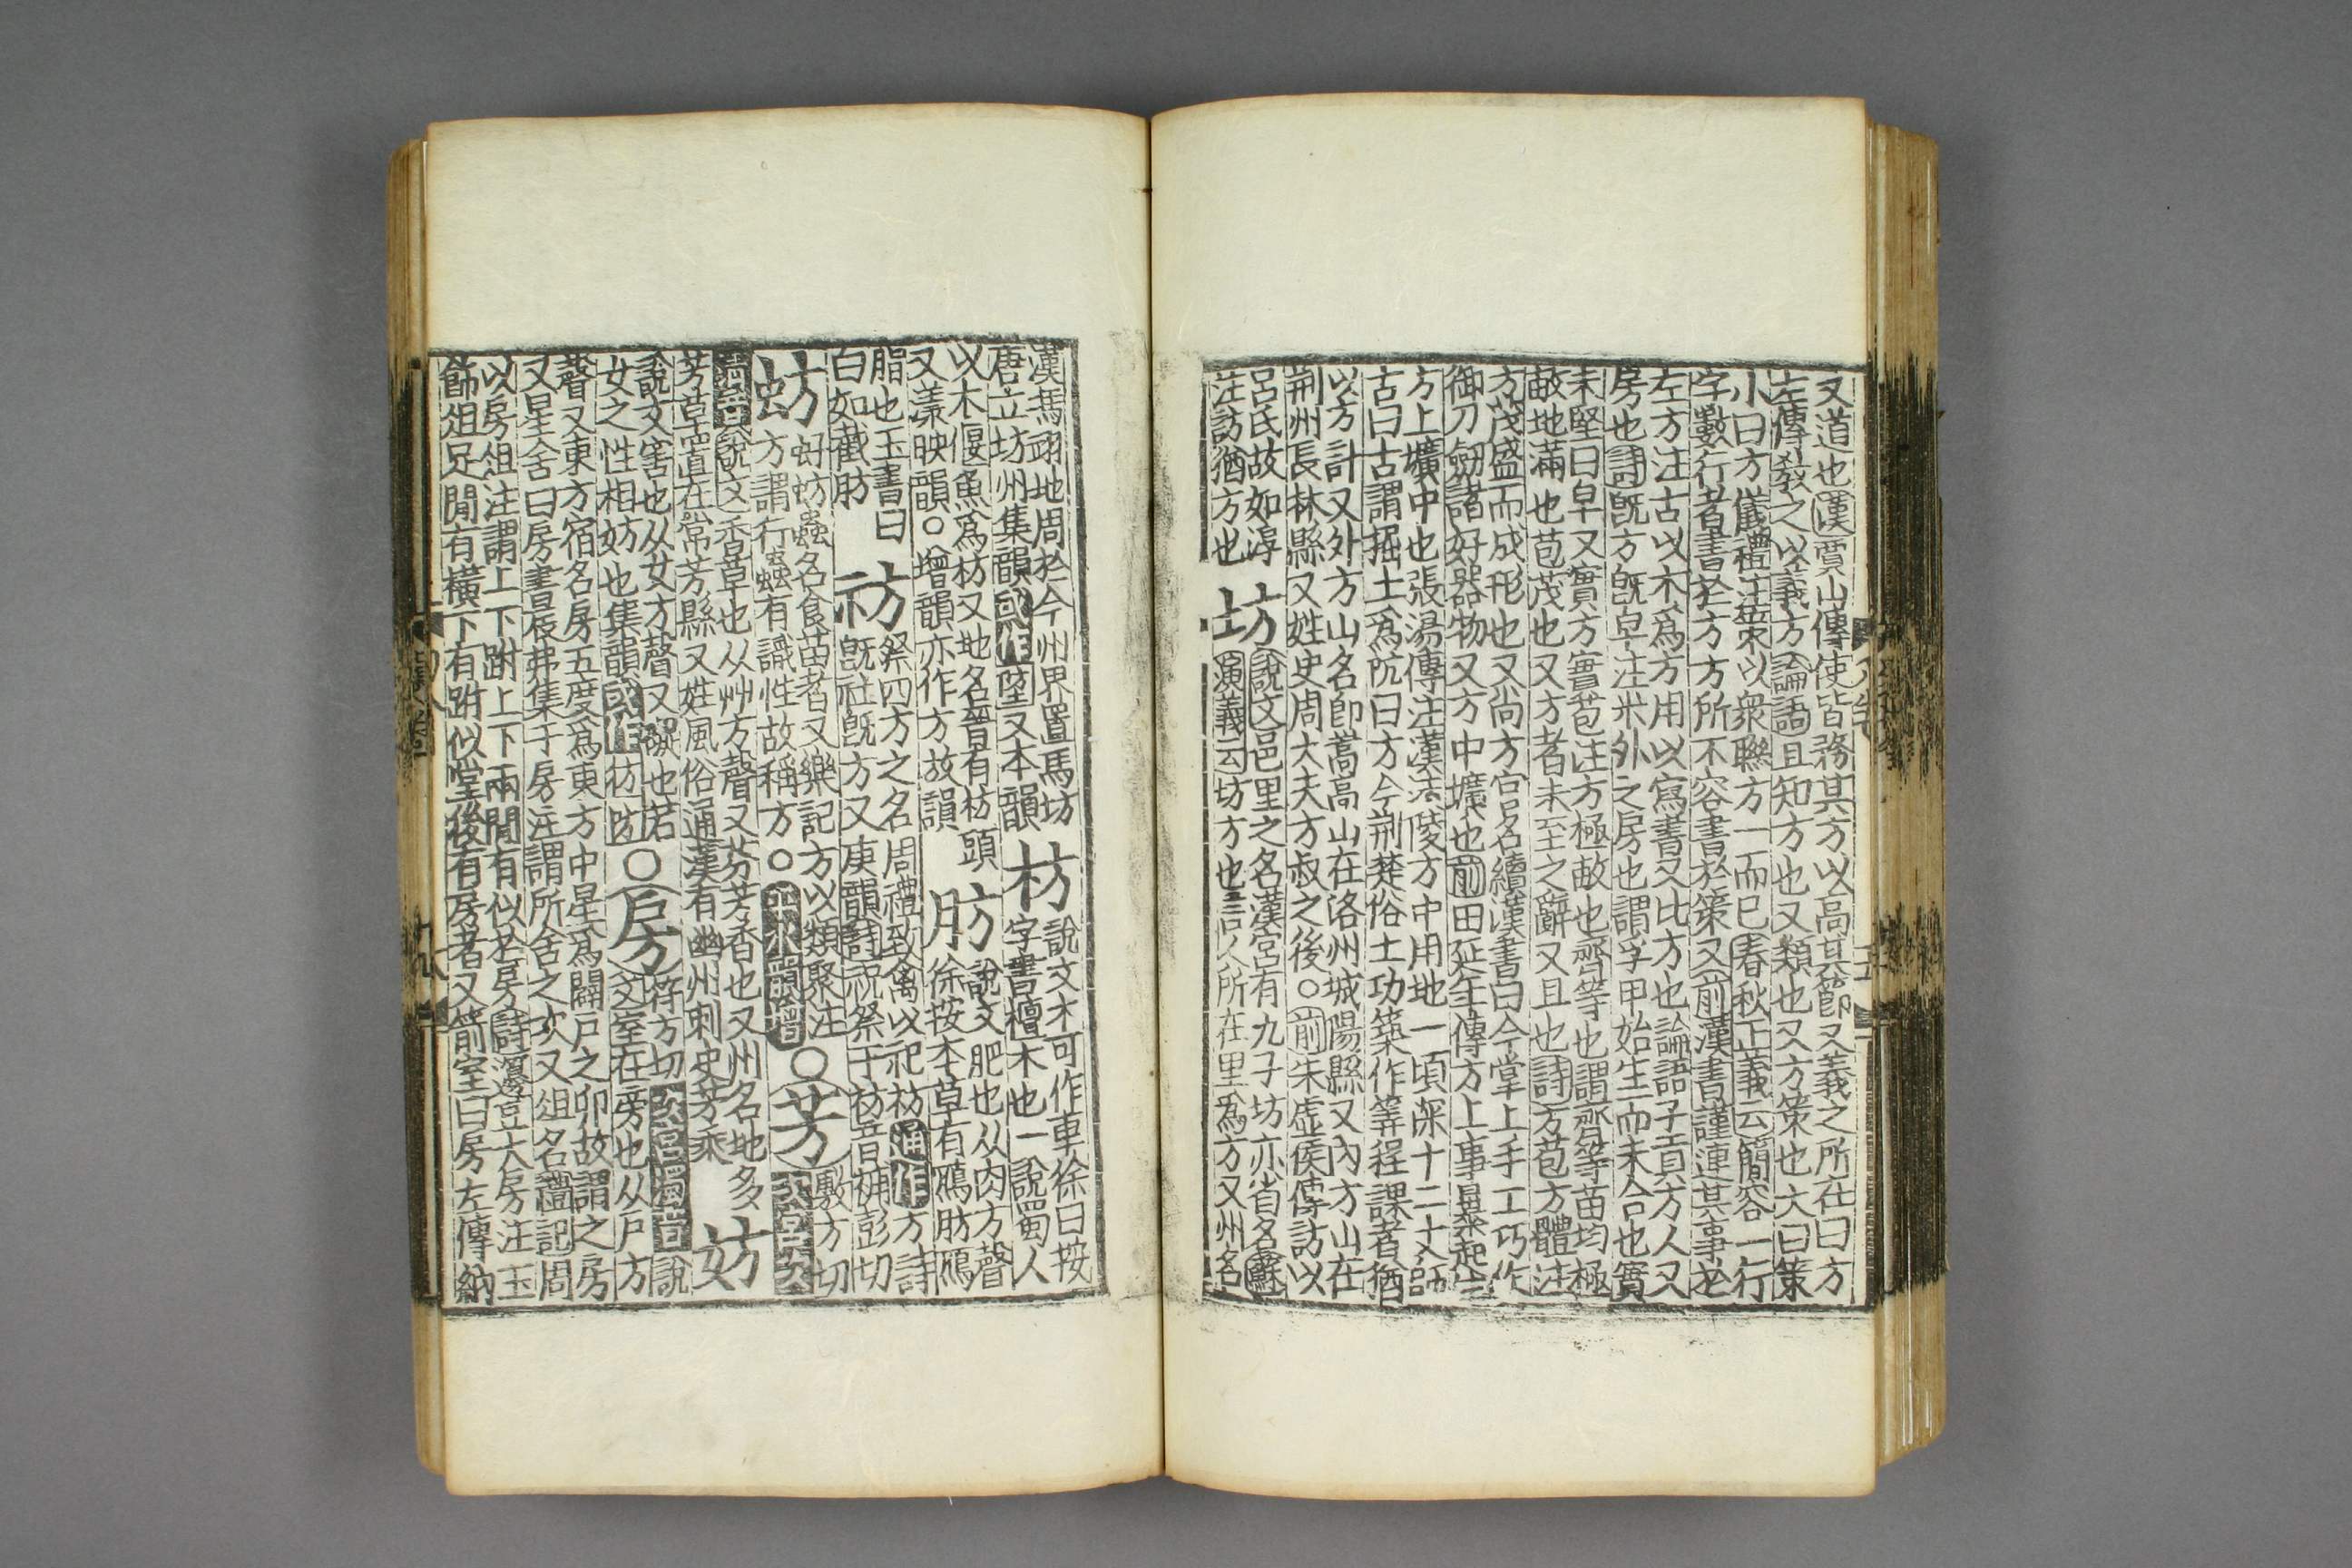 又道也漢賈山傳使皆務其方以高其節又義之所在曰方
左傳教之以義方論語且知方也又類也又方策也大曰策
小曰方儀禮注策以衆聯方一而已春秋正義云簡容一行
字數行者書於方方所不容書於策又前漢書謹連其事於
左方注古以木爲方用以寫書又比方也論語子貢方人又
房也詩旣方旣皁注米外之房也謂孚甲始生而未合也實
未堅曰皁又實方實苞注方極畝也齊等也謂齊等苗均極
畝地滿也苞茂也又方者未至之辭又且也詩方苞方體注
方茂盛而成形也又尚方官名續漢書曰今掌上手工巧作
御刀劒諸好器物又方中壙也前田延年傳方上事暴起注
方上壙中也張湯傳注漢法陵方中用地一頃深十二丈師
古曰古謂掘土爲阬曰方今荆楚俗土功築作筭程課者猶
以方計又外方山名即嵩高山在洛州城陽縣又內方山在
荆州長林縣又姓史周大夫方叔之後○前朱虛侯傳訪以
呂氏故如淳
注訪猶方也
坊
說文邑里之名漢宮有九子坊亦省名蘇
演義云坊方也言人所在里爲方又州名
漢馮翊地周於今州界置馬坊
唐立坊州集韻或作堏又本韻
枋
說文木可作車徐曰按
字書檀木也一說蜀人
以木偃魚爲枋又地名晉有枋頭
又漾映韻○增韻亦作方故韻
肪
說文肥也从肉方聲
徐按本草有鴈肪鴈
脂也玉書曰
白如截肪
祊
祭四方之名周禮致禽以祀祊通作方詩
旣社旣方又庚韻詩祝祭于祊音補彭切
蚄
虸蚄蟲名食苗者又樂記方以類聚注
方謂行蟲蟲有識性故稱方○平水韻增
○芳
敷方切次宮次
清音說文香草也从艸方聲又芬芳香也又州名地多
芳草置在常芳縣又姓風俗通漢有幽州刺史芳乘
妨
說文害也从女方聲又礙也若
女之性相妨也集韻或作
○房
符方切次宮濁音說
文室在旁也从戶方
聲又東方宿名房五度爲東方中星爲闢戶之卯故謂之房
又星舍曰房書辰弗集于房注謂所舍之次又俎名禮記周
以房俎注謂上下跗上下兩閒有似於房詩籩豆大房注玉
飾俎足閒有橫下有跗似堂後有房者又箭室曰房左傳納